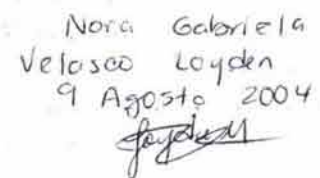 Nora Gabriela
Velasco Loyden
9 Agosto 2004